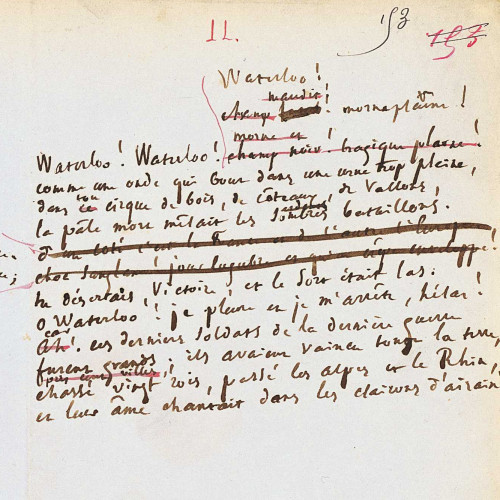 II. 153 153
Waterloo!
maudit!
champ morne plaine!
morne et
Waterloo! Waterloo! champ noir! tragique plaine!
comme une onde qui bout dans une urne trop pleine,
ton
dans ce cirque de bois, de côteaux, de vallons,
la pâle mort mêlait les sombres bataillons.
D'un côté c'est la France et de l'autre l'Europe
choc sanglant! jour lugubre et qui enveloppe!
tu désertais, Victoire! et le sort était las.
O Waterloo! je pleure et je m'arrête, hélas!
car
Ah! ces derniers soldats de la dernière guerre
furent grands; ils avaient vaincu toute la terre,
pris cent villes,
chassé vingt rois, passé les alpes et le Rhin,
et leur âme chantait dans les clairons d'airain!